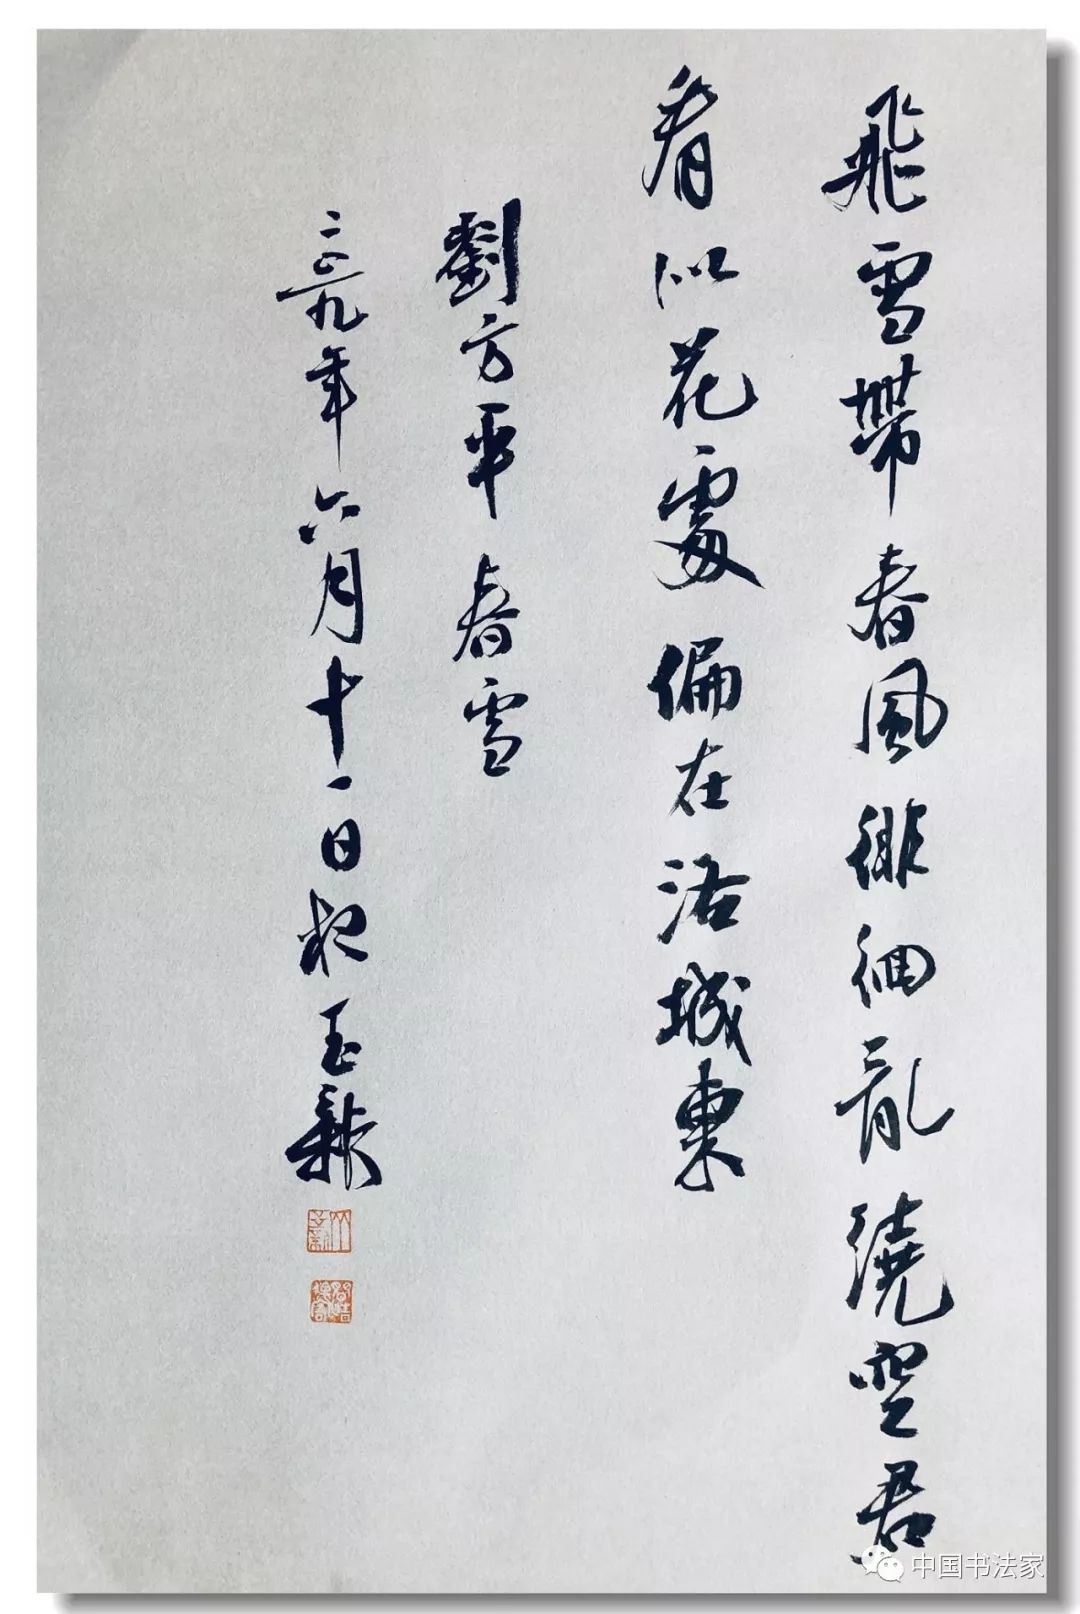 飛雪帶春風徘徊亂繞空君
看似花處偏在洛城東
劉方平春雪
二〇一九年六月十一日玉
中国书法家